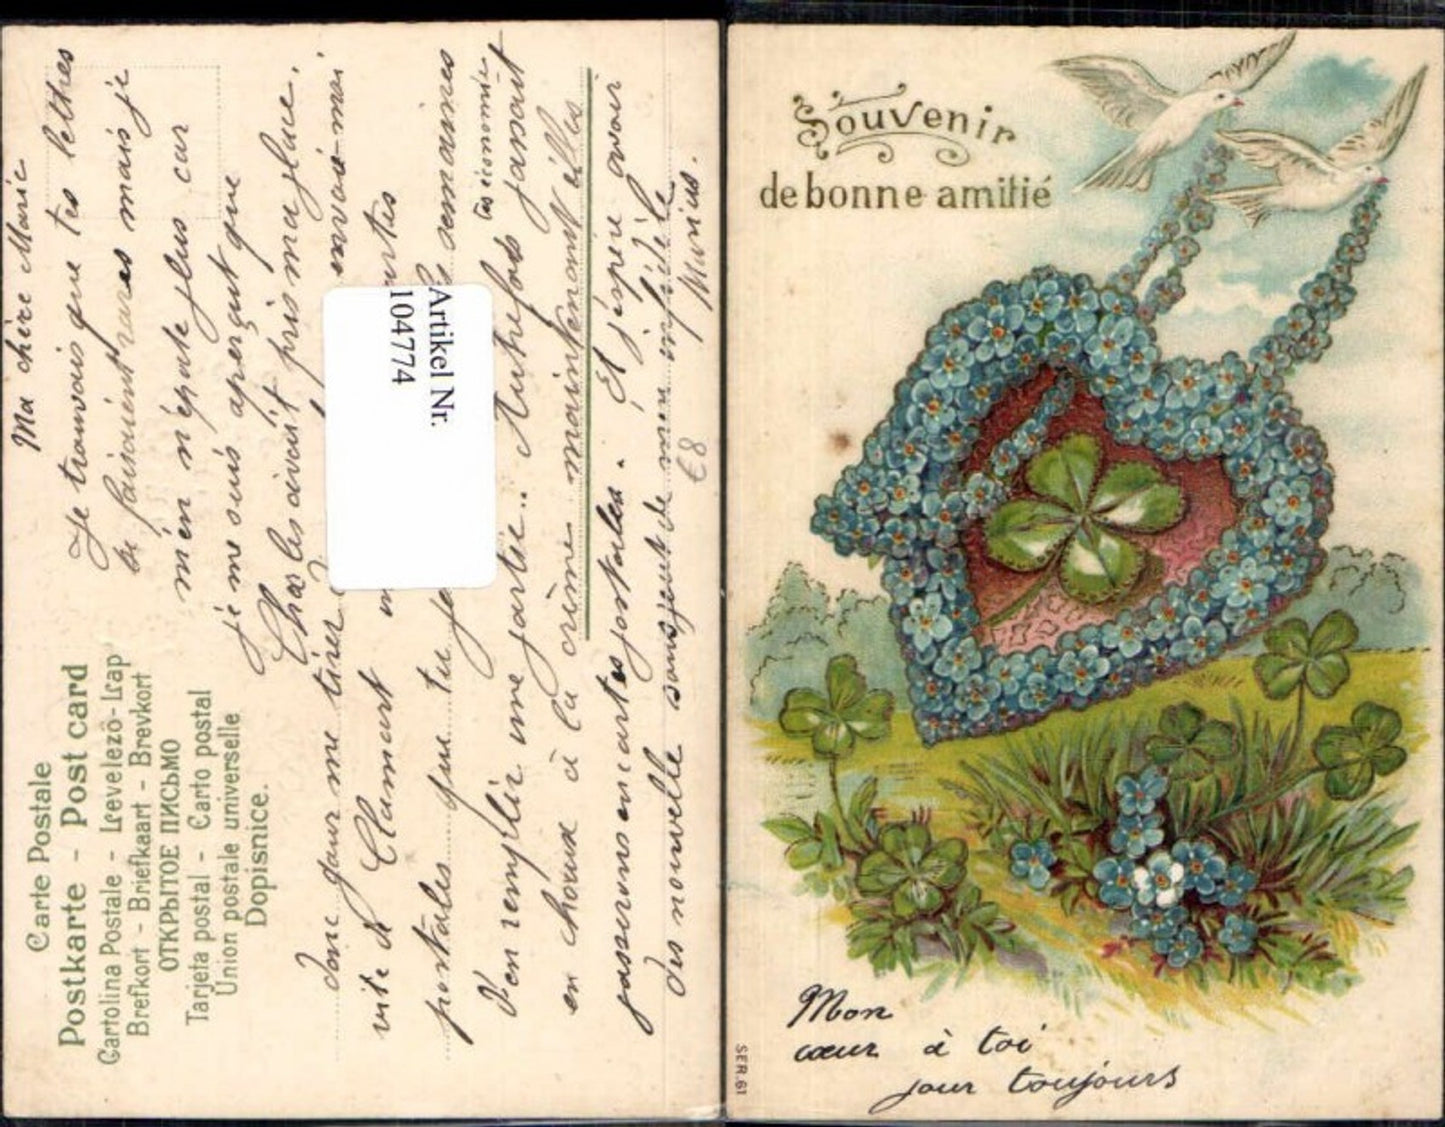 Ma chère Marie
Je trouvais que tes lettres
se faisaient rares mais je
m'en n'épate plus car
je me suis aperçut que
Charles avait pris ma place.
Donc pour me tirer envoie-moi
vite de Clamart
portales que tu semaines
tes économies
d'en remplir une partie.. Autrefois pansait
en choux à la crème maintenant elles
passerons en cartes postales. Et j'espère avoir
des nouvelle sans jeunt de mon infidèle
Marius.
€8
Artikel Nr.
104774
Carte Postale
Postkarte - Post card
Cartolina Postale - Levelező-Lap
Brefkort - Briefkaart - Brevkort
ОТКРЫТОЕ ПИСЬМО
Tarjeta postal - Carto postal
Union postale universelle
Dopisnice.
Souvenir
de bonne amitié
Mon
cœur à toi
pour toujours
SER.61